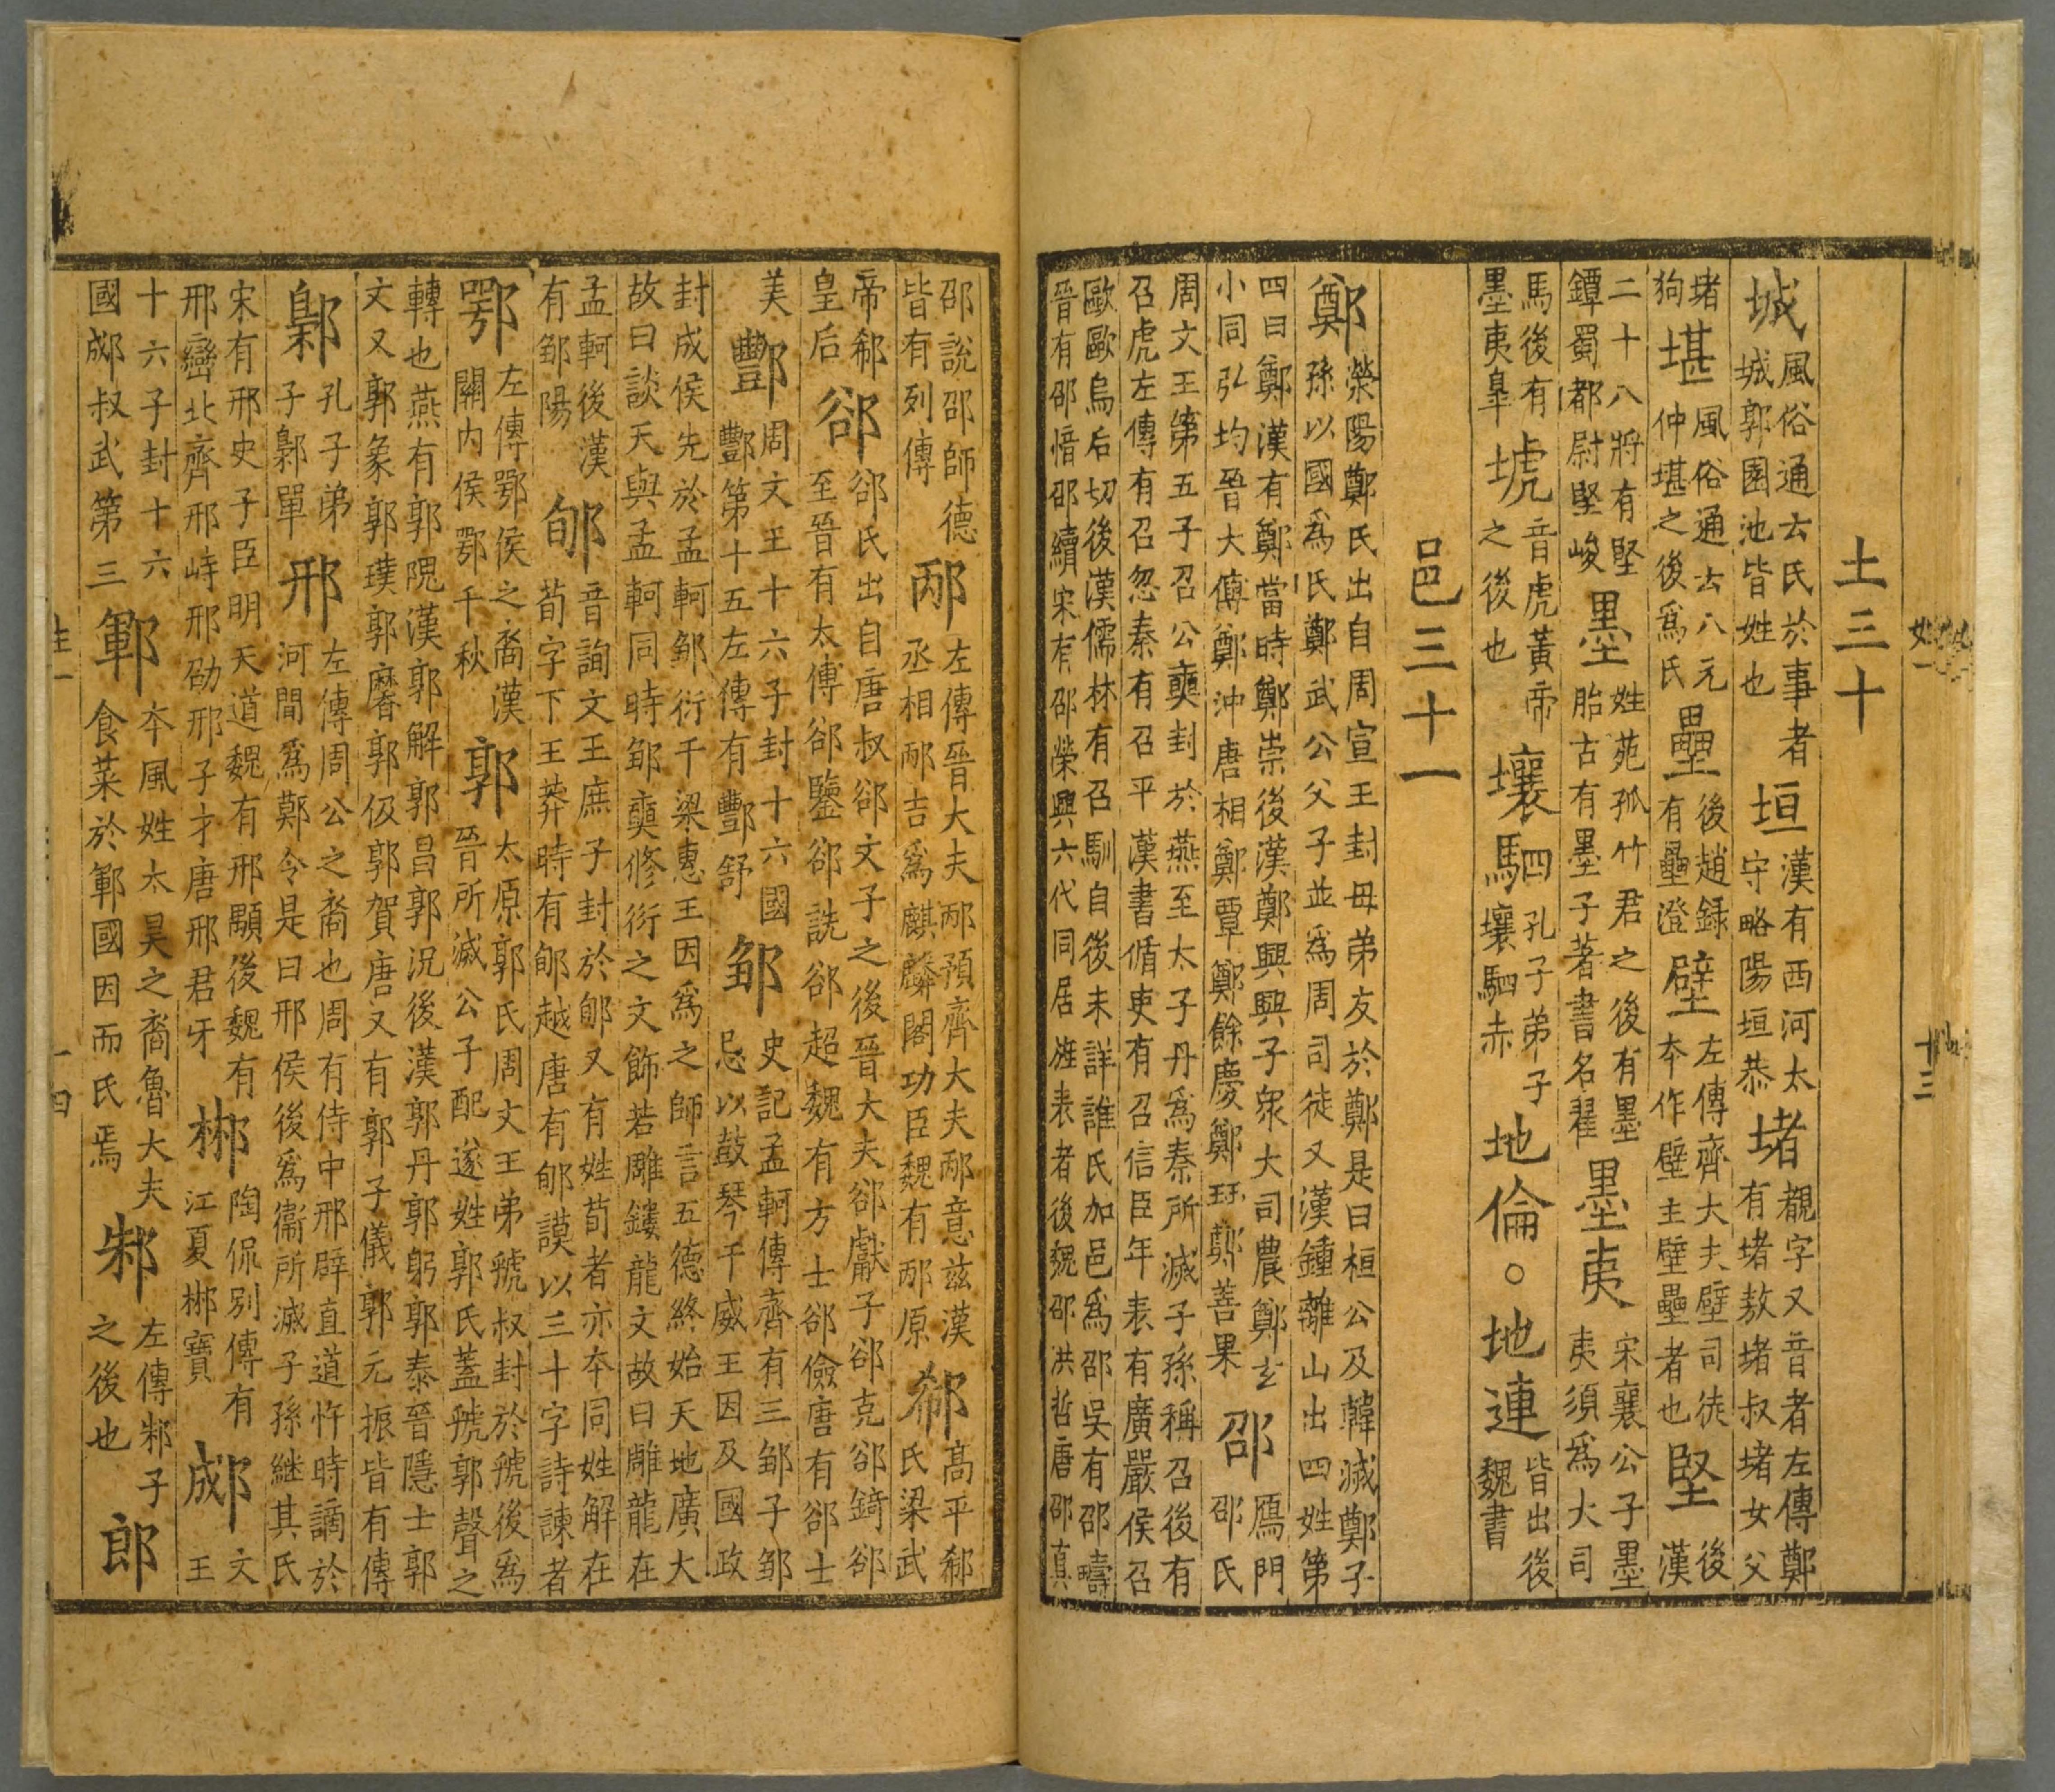 姓一
十三
土三十
城風俗通云氏於事者城郭園池皆姓也垣漢有西河太守略陽垣恭堵覩字又音者左傳鄭有堵敖堵叔堵女父
堵狗堪風俗通云八元仲堪之後爲氏壘後趙録有壘澄壁左傳齊大夫壁司徒本作壁主壁壘者也堅後漢
二十八將有堅鐔蜀都尉堅峻墨姓苑孤竹君之後有墨胎古有墨子著書名翟墨夷宋襄公子墨夷須爲大司
馬後有墨夷皐㙈音虎黃帝之後也壤駟四孔子弟子壤駟赤地倫。地連皆出後魏書
邑三十一
鄭滎陽鄭氏出自周宣王封母弟友於鄭是曰桓公及韓滅鄭子孫以國爲氏鄭武公父子並爲周司徒又漢鍾離山出四姓第
四曰鄭漢有鄭當時鄭崇後漢鄭興興子衆大司農鄭玄小同弘均晉大傅鄭沖唐相鄭覃鄭餘慶鄭珏鄭善果邵鴈門邵氏
周文王第五子召公奭封於燕至太子丹爲秦所滅子孫稱召後有召虎左傳有召忽秦有召平漢書循吏有召信臣年表有廣嚴侯召
歐歐烏后切後漢儒林有召馴自後未詳誰氏加邑爲邵吳有邵疇晉有邵愔邵續宋有邵榮興六代同居旌表者後魏邵洪哲唐邵真
邵說邵師德皆有列傳邴左傳晉大夫邴預齊大夫邴意茲漢丞相邴吉爲麒麟閣功臣魏有邴原郗高平郗氏梁武
帝郗皇后郤郤氏出自唐叔郤文子之後晉大夫郤獻子郤克郤錡郤至晉有太傅郤鑒郤詵郤超魏有方士郤儉唐有郤士
美酆周文王十六子封十六國酆第十五左傳有酆舒鄒史記孟軻傳齊有三鄒子鄒忌以鼓琴干威王因及國政
封成侯先於孟軻鄒衍干梁惠王因爲之師言五德終始天地廣大故曰談天與孟軻同時鄒奭修衍之文飾若雕鏤龍文故曰雕龍在
孟軻後漢有鄒陽郇音詢文王庶子封於郇又有姓荀者亦本同姓解在荀字下王莽時有郇越唐有郇謨以三十字詩諫者
鄂左傳鄂侯之裔漢關內侯鄂千秋郭太原郭氏周文王弟虢叔封於虢後爲晉所滅公子配遂姓郭氏蓋虢郭聲之
轉也燕有郭隗漢郭解郭昌郭況後漢郭丹郭躬郭泰晉隱士郭文又郭象郭璞郭𪎭郭伋郭賀唐又有郭子儀郭元振皆有傳
鄡孔子弟子鄡單邢左傳周公之裔也周有侍中邢辟直道忤時謫於河間爲鄭令是曰邢侯後爲衞所滅子孫継其氏
宋有邢史子臣明天道魏有邢顒後魏有邢巒北齊邢峙邢劭邢子才唐邢君牙郴陶侃別傳有江夏郴寶郕文王
十六子封十六國郕叔武第三鄆本風姓太昊之裔魯大夫食菜於鄆國因而氏焉邾左傳邾子之後也郎
姓一
十四